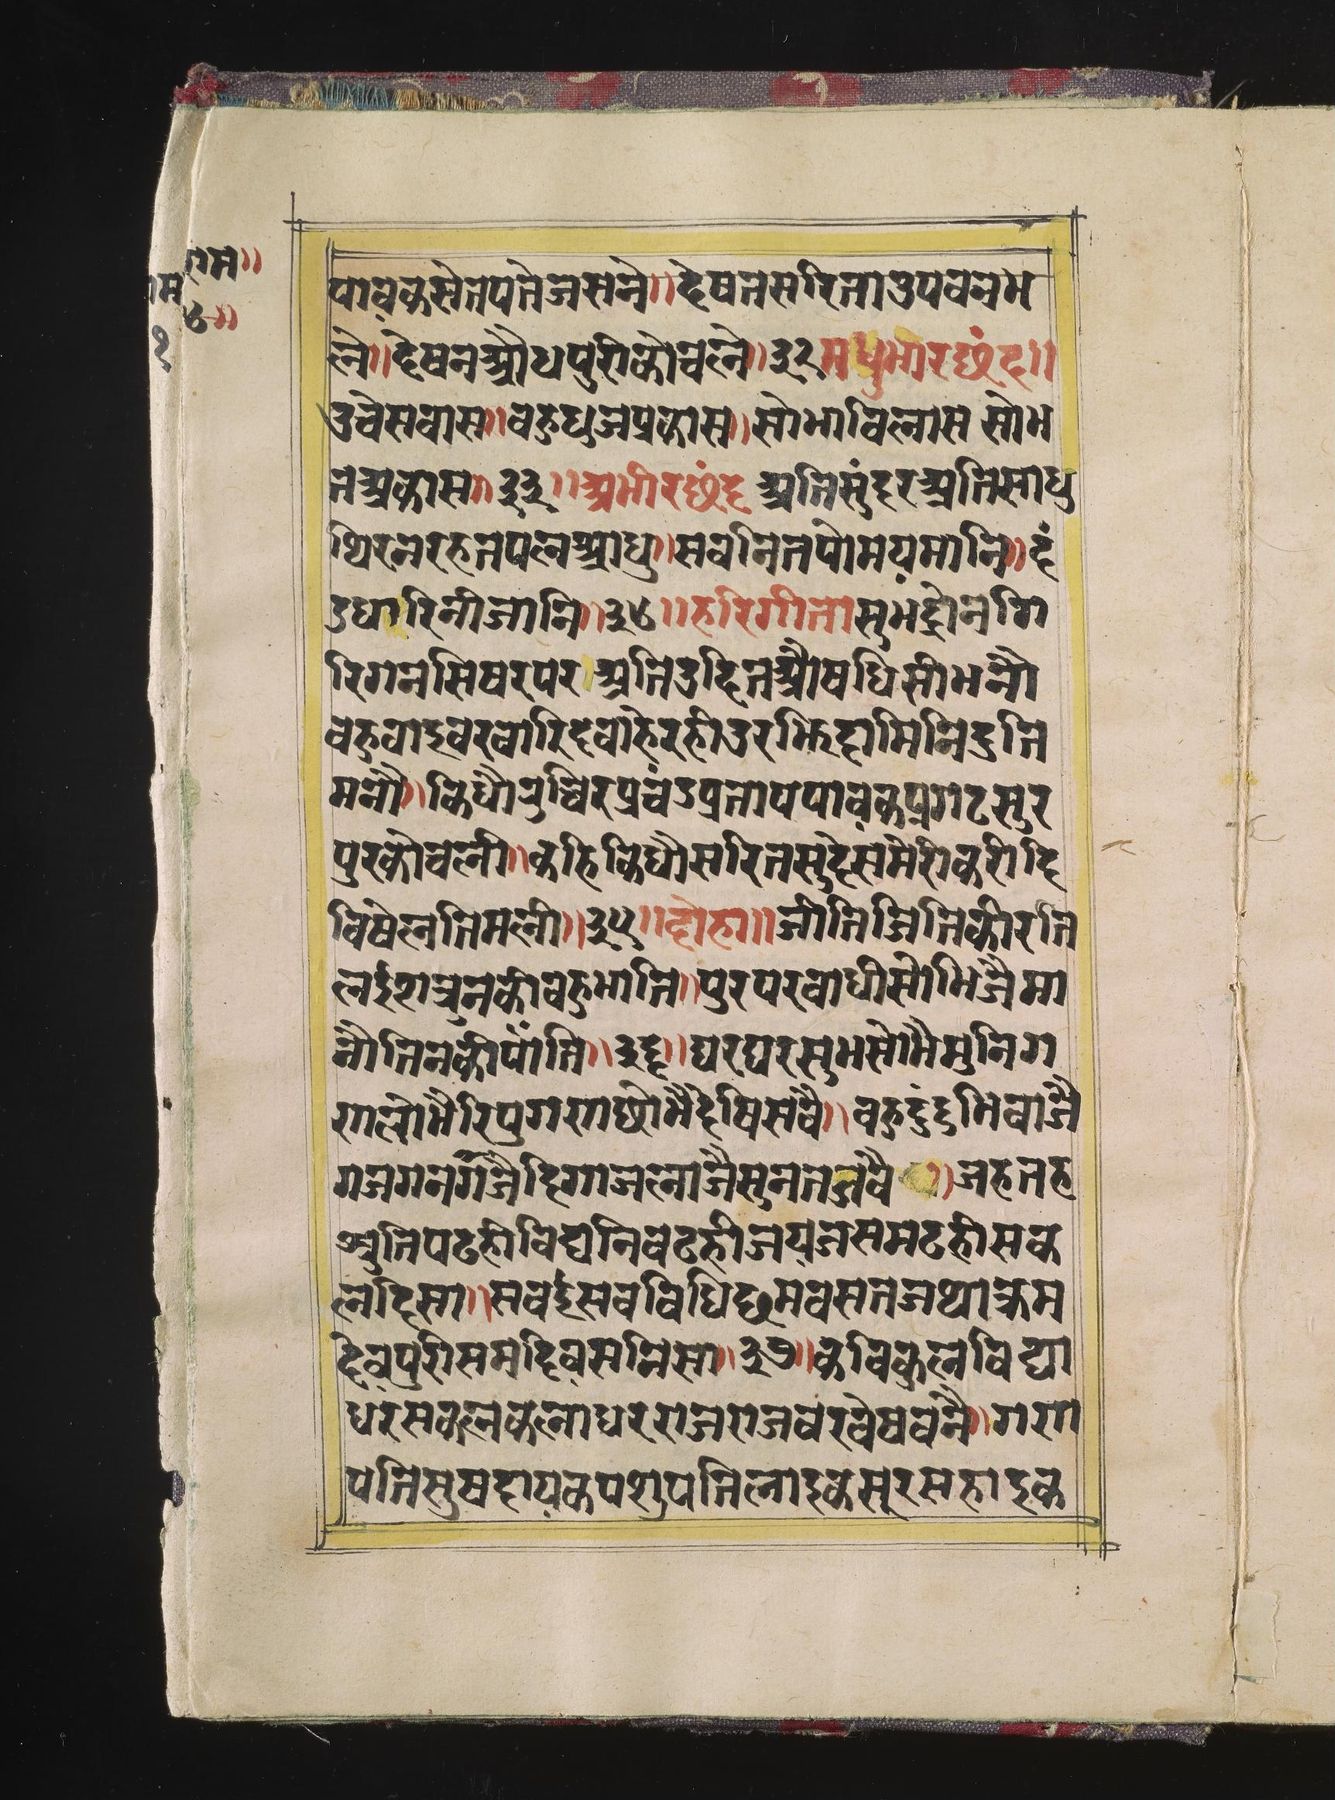 राम॥
४॥
पावकसेतपतेजसने॥देषतसरिताउपवनभ
ले॥देषनऔधपुरीकोचले॥३२मधुभारछंद॥
उचेसवास॥वहुधुजप्रकास॥सोभाविलास सोभ
तअकास॥३३॥अभीरछंद अतिसुंदरअतिसाधु
थिरनरहतपलआधु॥सवनितपोमयमानि॥दं
डधारिनीजानि॥३४॥हरिगीतासुभद्रोनगि
रिगनसिषरपर अतिउदितऔषधिसीभनौ
वहुवाइवरवारिदवाहेरहीउरझिदामिनिदुति
मनौ॥किधौरुचिरप्रचंडप्रतापपावकप्रगटसुर
पुरकोचली॥कहिकिधौसरितसुदेसमेरीकरीदि
विषेलतिभली॥३५॥दोहा॥जीतिजितिकीरति
लईशत्रुनकीवहुभांति॥पुरपरवाधीसोभिजैमा
नौतिनकीपांति॥३६॥घरघरसुभसोभैमुनिग
णलोभैरिपुगणछोभैदेषिसवै॥वहुदुंदुभिवाजै
गजगनगर्जैदिगाजलाजैसुनतजवै॥जहतह
श्रुतिपढहीविघ्ननिवढहीजयजसमढहीसक
लदिसा॥सवईसवविधिछमवसतजथाक्रम
देवपुरीसमदिवसनिसा॥३७॥कविकुलविद्या
धरसकलकलाधरराजराजवरवेषवनै॥गण
पतिसुषदायकपशुपतिलाइकसूरसहाइक